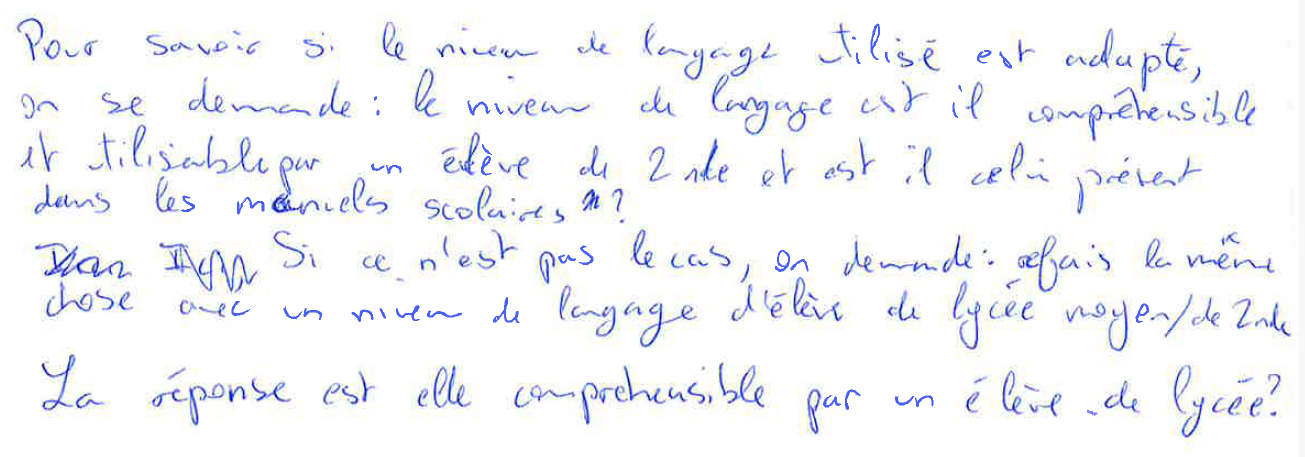 Pour savoir si le niveau de langage utilisé est adapté,
on se demande : le niveau de langage est il compréhensible
et utilisable par un élève de 2nde et est il celui présent
dans les manuels scolaires ?
Si ce n'est pas le cas, on demande : refais la même
chose avec un niveau de langage d'élève de lycée moyen/de 2nde
La réponse est elle compréhensible par un élève de lycée?